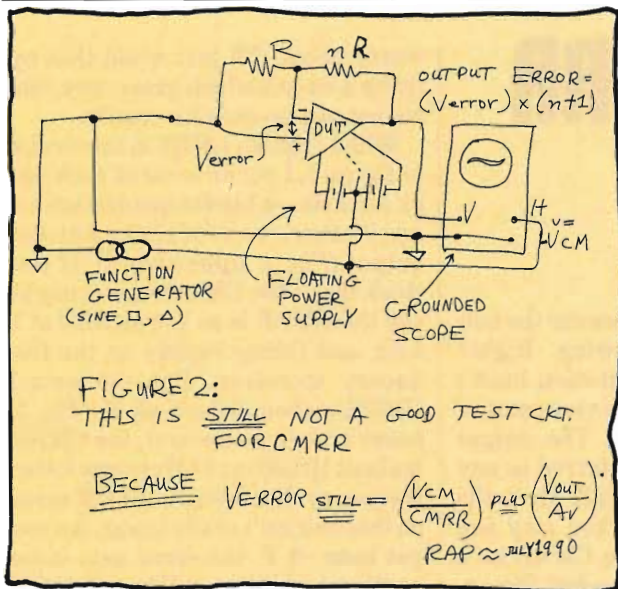 R nR
OUTPUT ERROR=
(Verror) × (n+1)
-
DUT
+
Verror
V
H
v=
VCM
FUNCTION
GENERATOR
(SINE, □, △)
FLOATING
POWER
SUPPLY
GROUNDED
SCOPE
FIGURE 2:
THIS IS STILL NOT A GOOD TEST CKT.
FOR CMRR
BECAUSE VERROR STILL = (VCM/CMRR) PLUS (VOUT/AV).
RAP ≈ JULY 1990